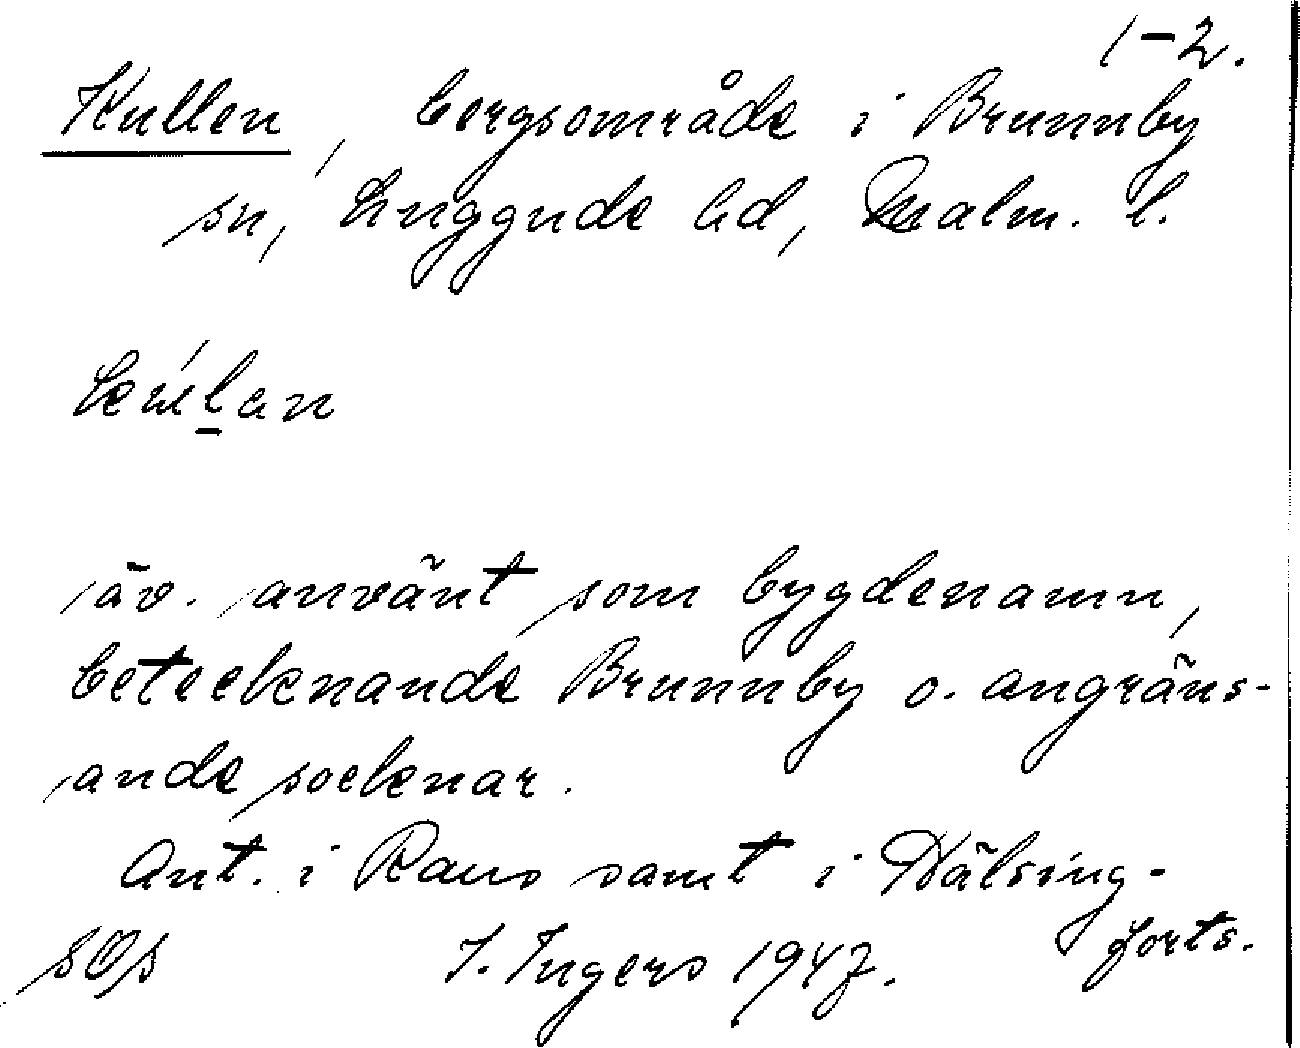 1-2.
Kullen, bergsområde i Brunnby
sn, Luggude hd, Malm. l.
äv. använt som bygdenamn,
betecknande Brunnby o. angräns-
ande socknar.
Ant. i Raus samt i Hälsing-
I. Ingers 1947. forts.